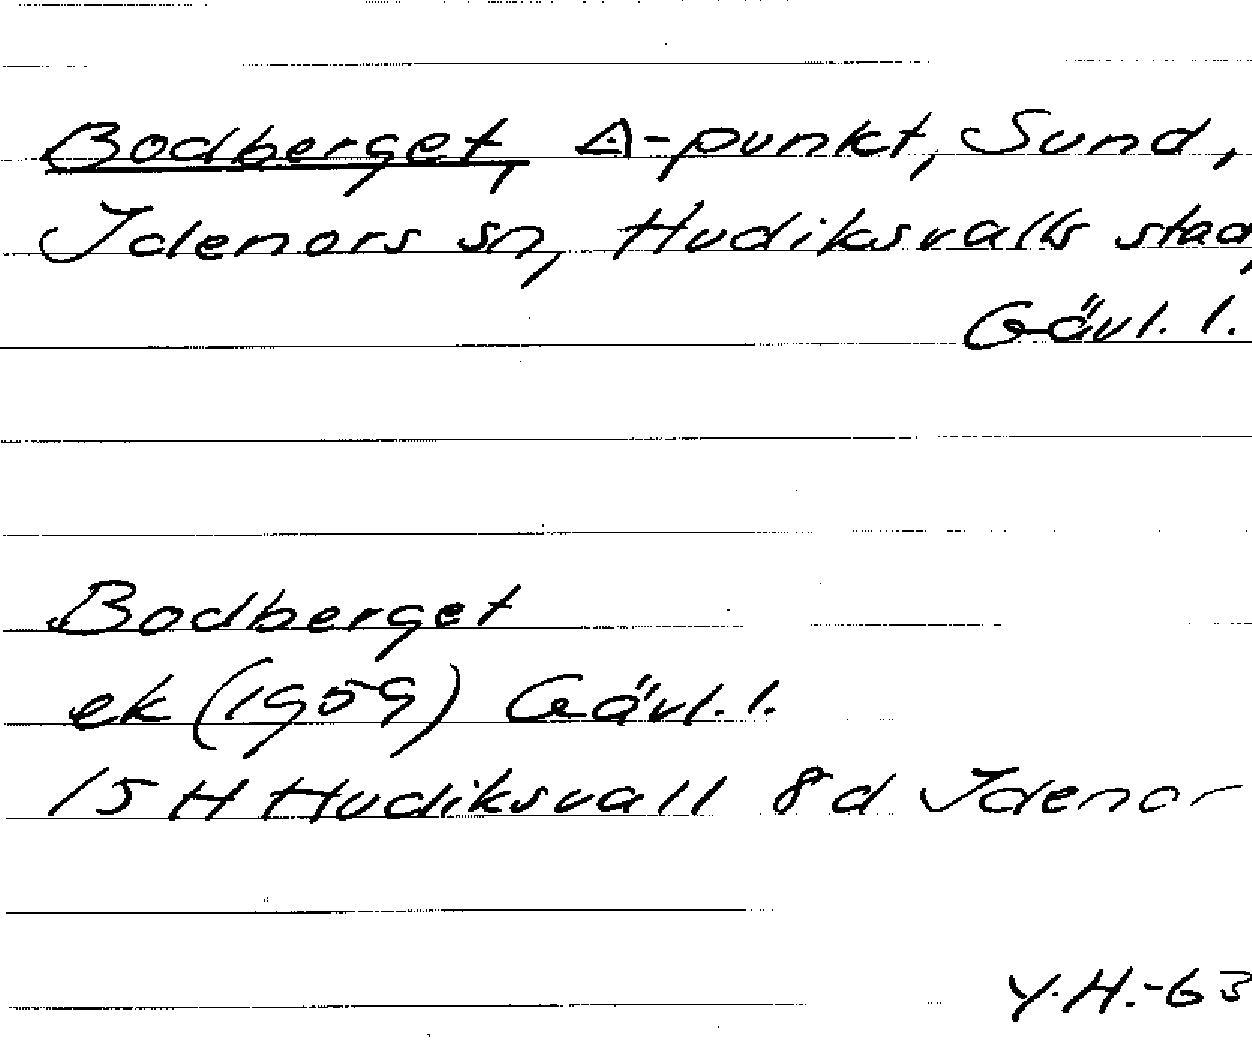 Bodberget, Δ-punkt, Sund,
Idenors sn, Hudiksvalls stad,
Gävl. l.
Bodberget
ek (1959) Gävl. l.
15 H Hudiksvall 8 d Idenor
Y.H.-63